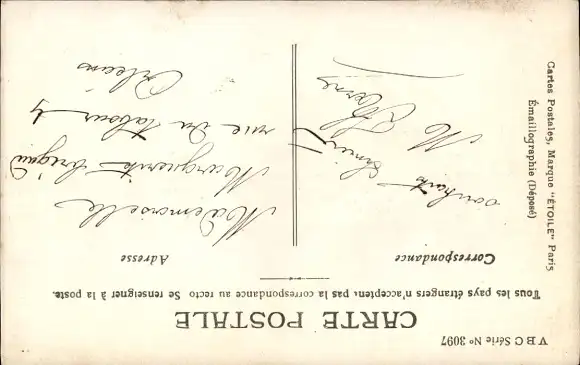 V B C Série No 3097
CARTE POSTALE
Tous les pays étrangers n'acceptent pas la correspondance au recto Se renseigner à la poste.
Correspondance
Adresse
souhaits
Mademoiselle
Marguerite
rue du Tabour 4
Orléans
Cartes Postales, Marque "ÉTOILE" Paris
Émaillographie (Déposé)